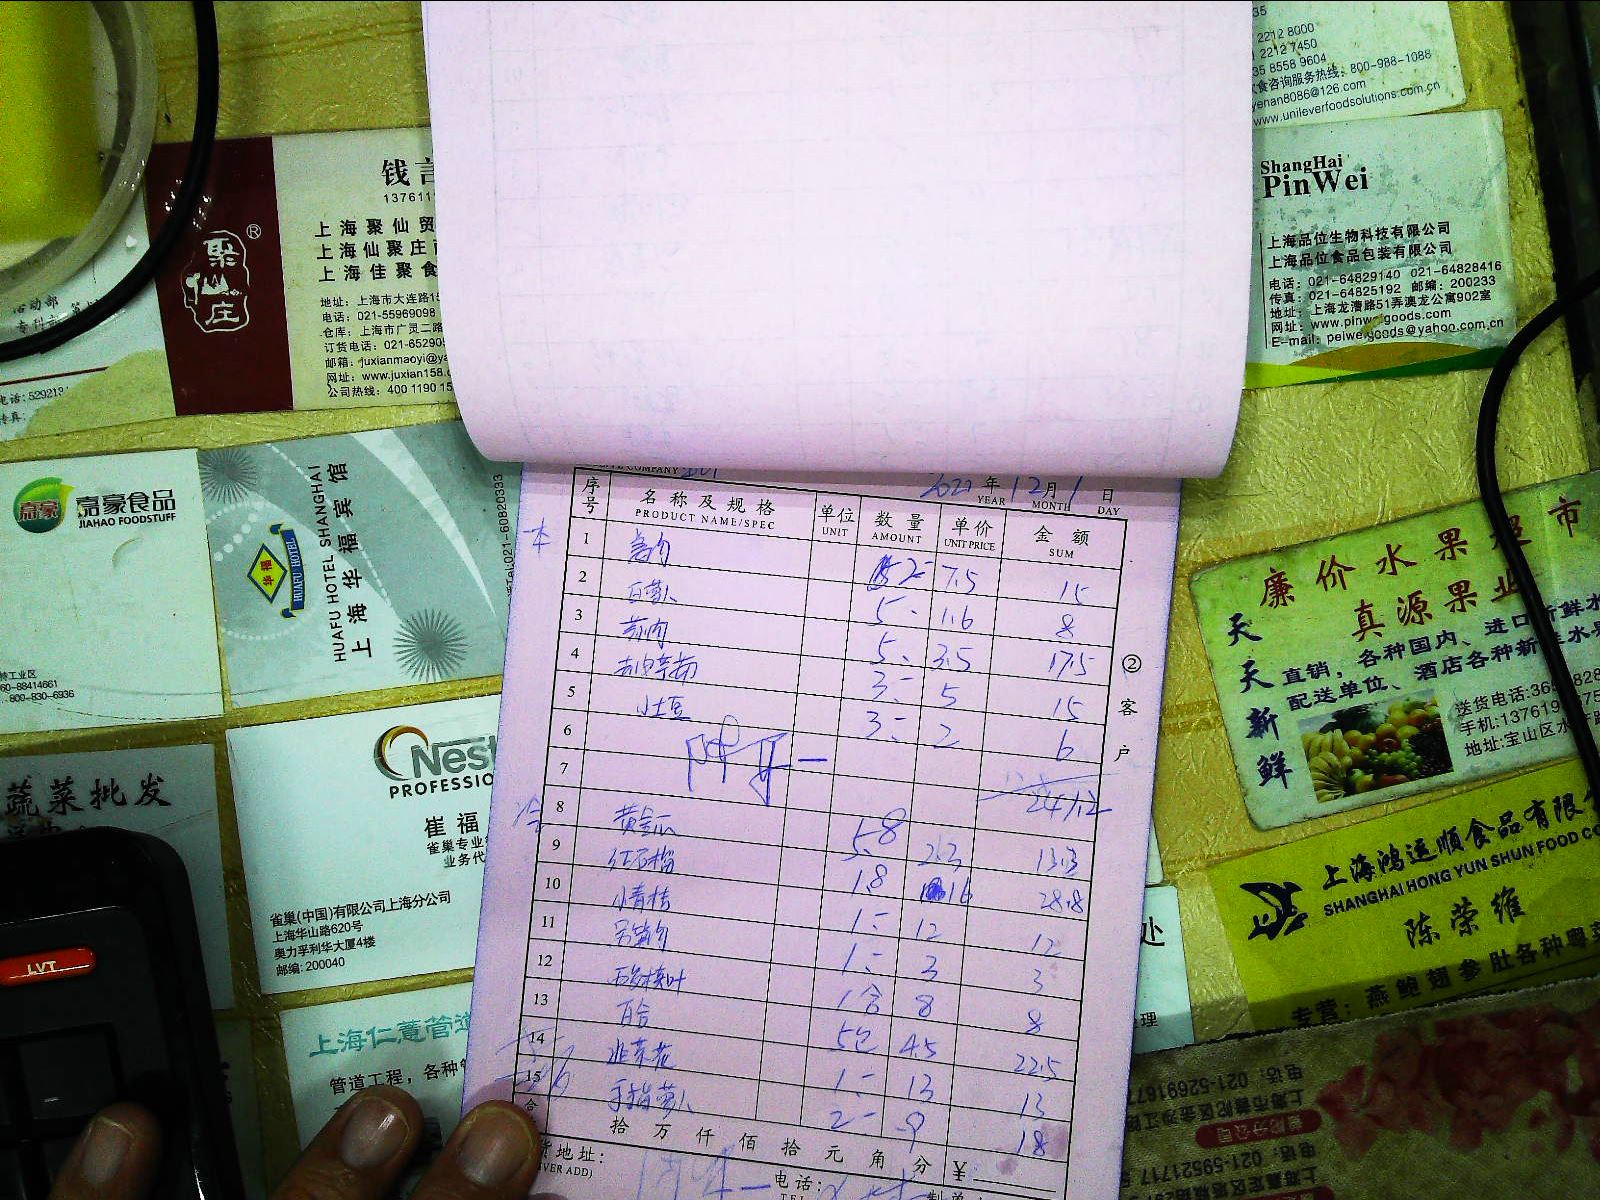 35
2212 8000
2212 7450
35 8558 9604
饮食咨询服务热线: 800-988-1088
yenan8086@126.com
www.unileverfoodsolutions.com.cn
钱言
137611
上海聚仙贸
上海仙聚庄
上海佳聚食
聚仙庄®
地址: 上海市大连路15
电话: 021-55969098
仓库: 上海市广灵二路
订货电话: 021-65290
邮箱: juxianmaoyi@ya
网址: www.juxian158.c
公司热线: 400 1190 15
活动部
专刊部
电话: 529213
传真:
ShangHai
PinWei
上海品位生物科技有限公司
上海品位食品包装有限公司
电话: 021-64829140 021-64828416
传真: 021-64825192 邮编: 200233
地址: 上海龙漕路51弄澳龙公寓902室
网址: www.pinweigoods.com
E-mail: peiweigoods@yahoo.com.cn
嘉豪
嘉豪食品
JIAHAO FOODSTUFF
特工业区
60-88414661
800-830-6936
华福
HUAFU HOTEL
HUAFU HOTEL SHANGHAI
上海华福宾馆
Tel:021-60820333
Nest
PROFESSIO
崔福
雀巢专业
业务代
雀巢(中国)有限公司上海分公司
上海华山路620号
奥力孚利华大厦4楼
邮编: 200040
蔬菜批发
LVT
上海仁薏管道
管道工程, 各种
COMPANY
2021年12月1日
YEAR MONTH DAY
序号 名称及规格 单位 数量 单价 金额
PRODUCT NAME/SPEC UNIT AMOUNT UNIT PRICE SUM
1 2- 7.5 15
2 白萝卜 5- 1.6 8
3 5- 3.5 17.5
4 3- 5 15
5 土豆 3- 2 6
6
7 24/12
8 黄金瓜 5.8 2.3 13.3
9 红石榴 1.8 16 28.8
10 小青桔 1- 12 12
11 1- 3 3
12 1合 8 8
13 百合 5包 4.5 22.5
14 韭菜花 1- 13 13
15 手指萝卜 2- 9 18
合 拾万仟佰拾元角分 ¥
货地址:
IVER ADD)
电话:
TEL
制单:
②客户
廉价水果超市
真源果业
天天新鲜
直销, 各种国内、进口新鲜水
配送单位、酒店各种新鲜水果
送货电话:36
手机:13761
地址:宝山区水
上海鸿运顺食品有限
SHANGHAI HONG YUN SHUN FOOD CO
陈荣维
专营: 燕鲍翅参肚各种粤菜
处
理
电话: 021-5269167
上海市普陀区金沙江路
普陀分公司
电话: 021-59521717